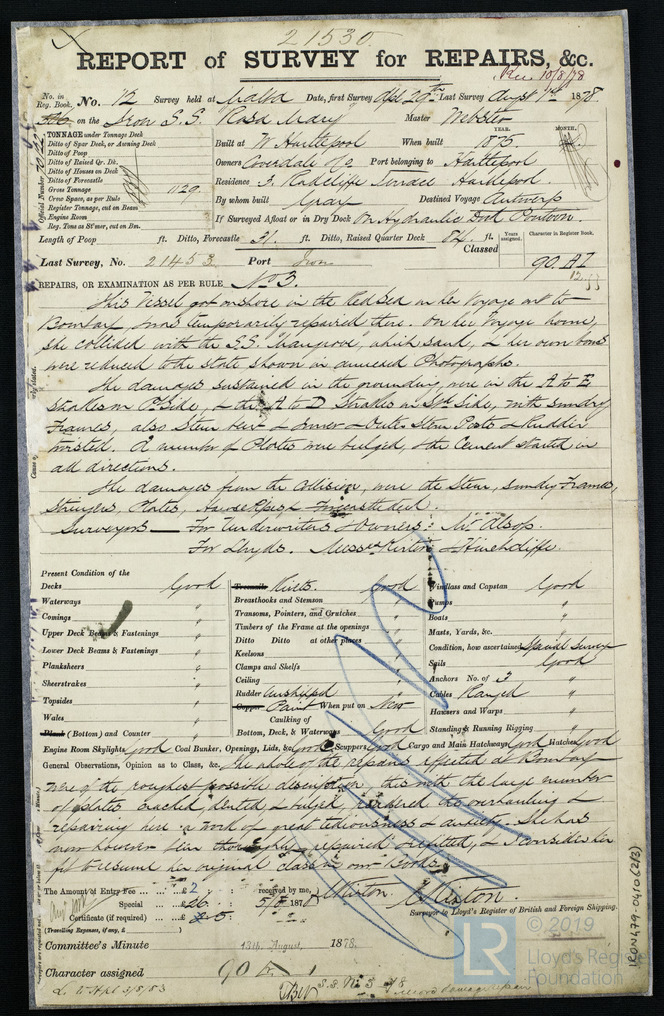 21530
REPORT of SURVEY for REPAIRS, &c.
Rec. 10/8/78
No. in Reg. Book. No. 12 Survey held at Malta Date, first Survey Apl 29th Last Survey August 1st 1878.
on the Iron S.S. Rosa Mary Master Webster
TONNAGE under Tonnage Deck
Ditto of Spar Deck, or Awning Deck
Ditto of Poop
Ditto of Raised Qr. Dk.
Ditto of Houses on Deck
Ditto of Forecastle
Gross Tonnage 1129
Crew Space, as per Rule
Register Tonnage, cut on Beam
Engine Room
Reg. Tons as St'mer, cut on Bm.
Official Number
Built at W Hartlepool When built YEAR. 1875 MONTH.
Owners Coverdale & Co Port belonging to Hartlepool
Residence 3. Radcliffe Terrace Hartlepool
By whom built Gray Destined Voyage Antwerp
If Surveyed Afloat or in Dry Dock On Hydraulic Dock Pontoon.
Length of Poop ft. Ditto, Forecastle 31. ft. Ditto, Raised Quarter Deck 84. ft. Classed Years assigned. Character in Register Book.
Last Survey, No. 21453 Port Iron 90. A1
REPAIRS, OR EXAMINATION AS PER RULE No 3.
This Vessel got onshore in the Red Sea on her Voyage out to
Bombay, & was temporarily repaired there. On her Voyage home,
she collided with the S.S. Mangrove, which sank, & her own bows
were reduced to the state shown in annexed Photographs.
The damages sustained in the grounding, were in the A to E
Strakes on Pt Side, & the A to D Strakes on Sbd Side, with sundry
Frames, also Stern & Inner & Outer Stern Posts & Rudder
twisted. A number of Plates were bulged, & the Cement started in
all directions.
The damages from the Collision, were the Stem, sundry Frames,
Stringers, Plates, Hawse Pipes & Forecastle deck.
Surveyors — For Underwriters & Owners: Mr Alsop.
For Lloyds. Messrs Kirton & Hinchcliffe.
Present Condition of the
Decks Good
Waterways "
Comings "
Upper Deck Beams & Fastenings "
Lower Deck Beams & Fastenings "
Planksheers "
Sheerstrakes "
Topsides "
Wales "
Plank (Bottom) and Counter "
Treenails Rivets. Good
Breasthooks and Stemson "
Transoms, Pointers, and Crutches "
Timbers of the Frame at the openings "
Ditto Ditto at other places "
Keelsons "
Clamps and Shelfs "
Ceiling "
Rudder Unshipped "
Copper Paint When put on New
Caulking of
Bottom, Deck, & Waterways Good
Windlass and Capstan Good
Pumps "
Boats "
Masts, Yards, &c. "
Condition, how ascertained Special Survey
Sails Good
Anchors No. of 3 "
Cables Ranged "
Hawsers and Warps "
Standing & Running Rigging "
Engine Room Skylights Good Coal Bunker, Openings, Lids, &c. Good Scuppers Good Cargo and Main Hatchways Good Hatches Good
General Observations, Opinion as to Class, &c. The whole of the repairs effected at Bombay
were of the roughest possible description, this with the large number
of plates cracked, dented & bulged, rendered the overhauling &
repairing here a work of great tediousness & anxiety. She has
now however been thoroughly repaired & refitted, & I consider her
fit to resume her original class in our Books.
The Amount of Entry Fee ... .. £2 : : received by me,
Special ... .. £26 : : 5/8 1878
Certificate (if required) .. £ 5 : :
(Travelling Expenses, if any, £ )
Kirton
Surveyor to Lloyd's Register of British and Foreign Shipping.
Committee's Minute 13th August, 1878.
Character assigned 90 A 1
© 2019
LR
Lloyd's Register
Foundation
IRON479-0410 (2/3)